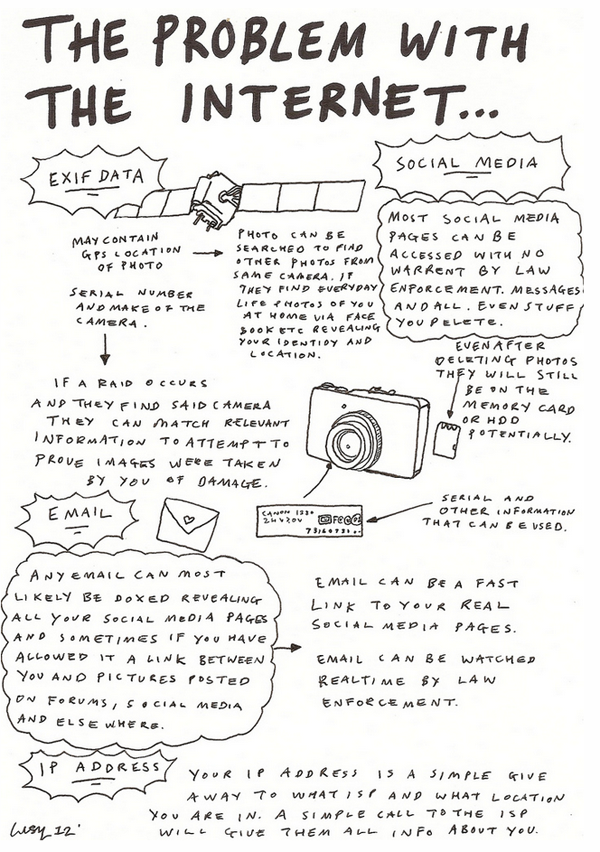 THE PROBLEM WITH
THE INTERNET...
EXIF DATA
MAY CONTAIN
GPS LOCATION
OF PHOTO
SERIAL NUMBER
AND MAKE OF THE
CAMERA.
PHOTO CAN BE
SEARCHED TO FIND
OTHER PHOTOS FROM
SAME CAMERA. IF
THEY FIND EVERYDAY
LIFE PHOTOS OF YOU
AT HOME VIA FACE
BOOK ETC REVEALING
YOUR IDENTIDY AND
LOCATION.
SOCIAL MEDIA
MOST SOCIAL MEDIA
PAGES CAN BE
ACCESSED WITH NO
WARRENT BY LAW
ENFORCEMENT. MESSAGES
AND ALL. EVEN STUFF
YOU DELETE.
EVEN AFTER
DELETING PHOTOS
THEY WILL STILL
BE ON THE
MEMORY CARD
OR HDD
POTENTIALLY.
IF A RAID OCCURS
AND THEY FIND SAID CAMERA
THEY CAN MATCH RELEVANT
INFORMATION TO ATTEMPT TO
PROVE IMAGES WERE TAKEN
BY YOU OF DAMAGE.
CANON
SERIAL AND
OTHER INFORMATION
THAT CAN BE USED.
EMAIL
ANY EMAIL CAN MOST
LIKELY BE DOXED REVEALING
ALL YOUR SOCIAL MEDIA PAGES
AND SOMETIMES IF YOU HAVE
ALLOWED IT A LINK BETWEEN
YOU AND PICTURES POSTED
ON FORUMS, SOCIAL MEDIA
AND ELSEWHERE.
EMAIL CAN BE A FAST
LINK TO YOUR REAL
SOCIAL MEDIA PAGES.
EMAIL CAN BE WATCHED
REALTIME BY LAW
ENFORCEMENT.
IP ADDRESS
YOUR IP ADDRESS IS A SIMPLE GIVE
AWAY TO WHAT ISP AND WHAT LOCATION
YOU ARE IN. A SIMPLE CALL TO THE ISP
WILL GIVE THEM ALL INFO ABOUT YOU.
12'